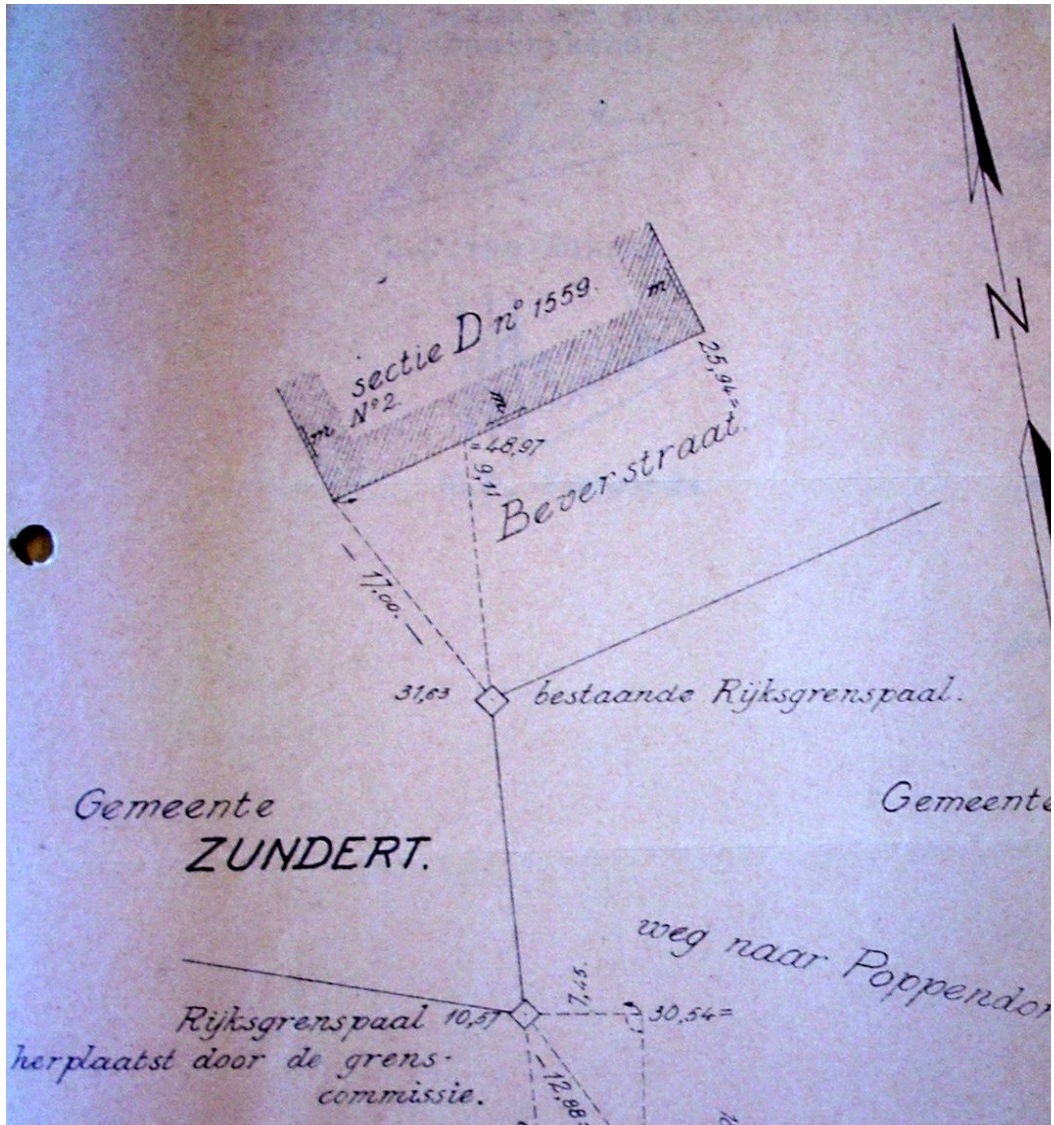 N
sectie D nº 1559.
m
Nº 2.
m
m
25,94=
=48,97
9,11
Beverstraat.
— 17,00. —
31,63
bestaande Rijksgrenspaal.
Gemeente
ZUNDERT.
Gemeente
weg naar Poppendor
7,45.
Rijksgrenspaal 10,57
30,54=
herplaatst door de grens-
commissie.
—12,88=